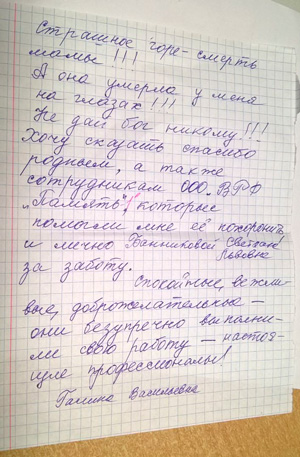 Страшное горе - смерть
мамы!!!
А она умерла у меня
на глазах!!!
Не дай бог никому!!!
Хочу сказать спасибо
родным, а также
сотрудникам ООО. ВРФ
"Память", которые
помогли мне её похоронить
и лично Банниковой Светлане
Львовне
за заботу.
Спокойные, вежли-
вые, доброжелательные -
они безупречно выполни-
ли свою работу - настоя-
щие профессионалы!
Галина Васильевна